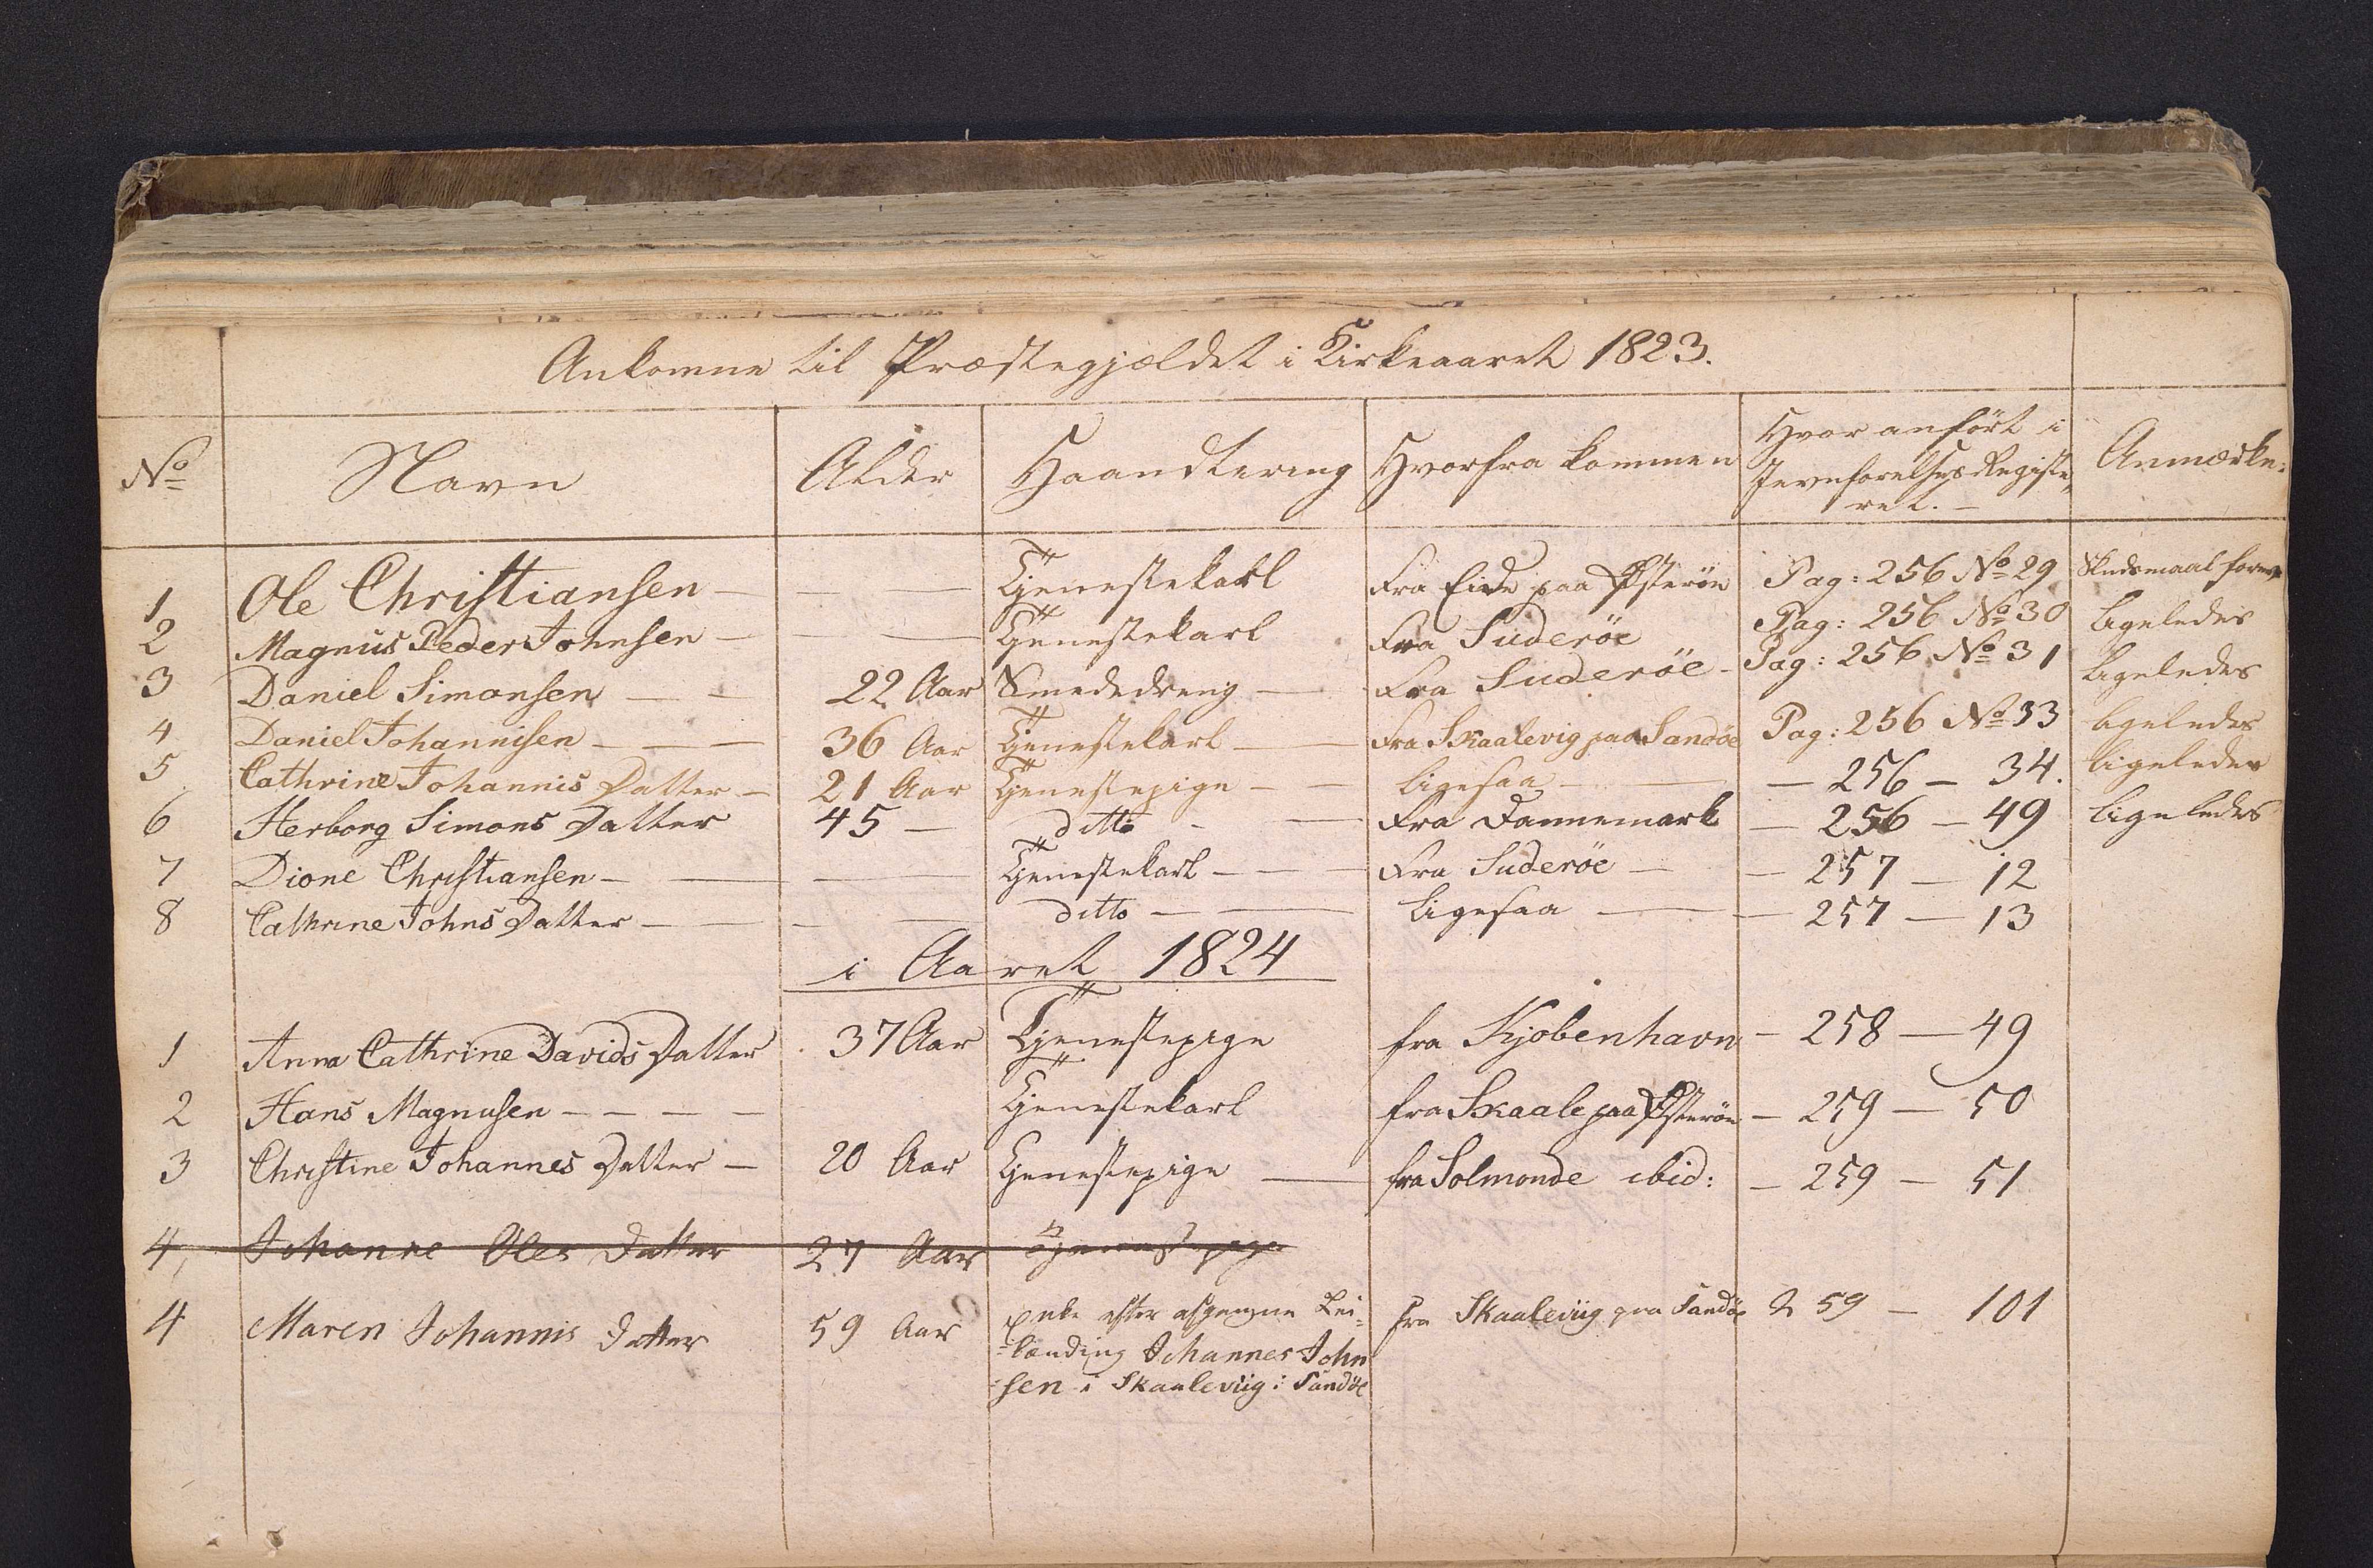 Ankomne til Præstegjældet i Kirkeaaret 1823.
No Navn Alder Haandtering Hvorfra kommen Hvor anført i Jevnførelses Registe„ ret. – Anmærkn:
1 Ole Christiansen – Tjenestekarl Fra Eide paa Østerøe Pag: 256 No 29 Skudsmaal forev
2 Magnus Peder Johnsen – Tjenestekarl Fra Suderöe Pag: 256 No 30 ligeledes
3 Daniel Simonsen – – 22 Aar Smededreng – Fra Suderöe – Pag: 256 No 31 ligeledes
4 Daniel Johannisen – – – 36 Aar Tjenestekarl – Fra Skaalevig paa Sandöe Pag: 256 No 33 ligeledes
5 Cathrine Johannis Datter – 21 Aar Tjenestepige – – ligesaa – – 256 – 34. ligeledes
6 Herborg Simons Datter 45 – ditto – Fra Dannemark – 256 – 49 ligeledes
7 Dione Christiansen – – Tjenestekarl – – Fra Suderöe – – 257 – 12
8 Cathrine Johns Datter – – ditto – – ligesaa – – 257 – 13
i Aaret 1824
1 Anna Cathrine Davids Datter 37 Aar Tjenestepige fra Kjobenhavn – 258 – 49
2 Hans Magnusen – – – – Tjenestekarl fra Skaale paa Østerøe – 259 – 50
3 Christine Johannes Datter – 20 Aar Tjenestepige – fra Solmonde ibid: – 259 – 51
4, Johanne Oles Datter 27 Aar Tjenestepige
4 Maren Johannis Datter 59 Aar Enke efter afgangne Lei= fra Skaaleviig paa Sandöe 259 – 101
=lænding Johannes John
=sen i Skaaleviig i Sandöe